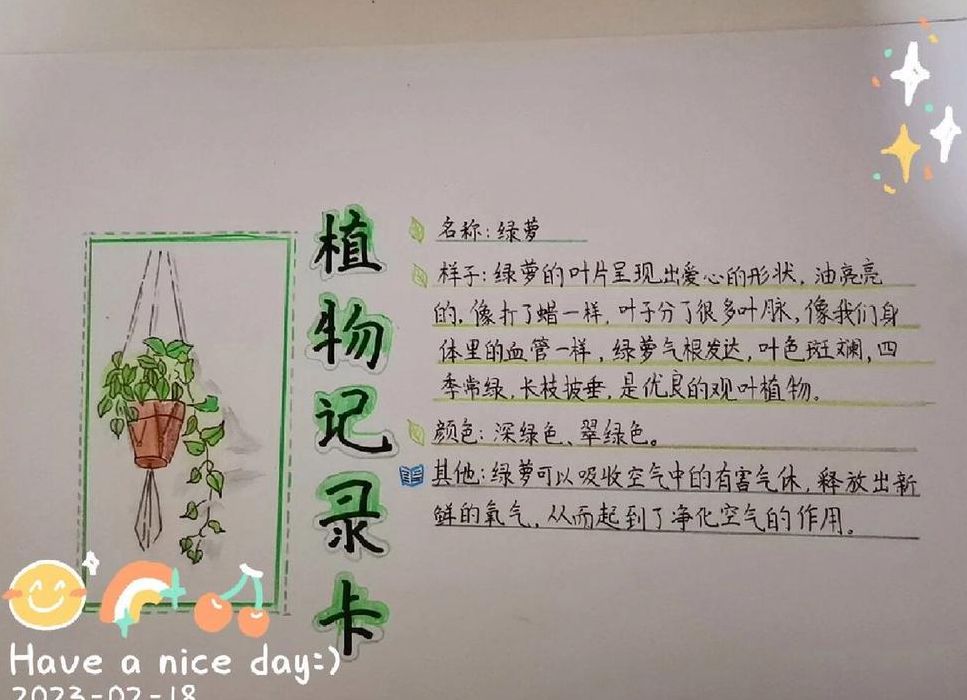 植物记录卡
名称：绿萝
样子：绿萝的叶片呈现出爱心的形状，油亮亮
的，像打了蜡一样，叶子分了很多叶脉，像我们身
体里的血管一样，绿萝气根发达，叶色斑斓，四
季常绿，长枝披垂，是优良的观叶植物。
颜色：深绿色、翠绿色。
其他：绿萝可以吸收空气中的有害气体，释放出新
鲜的氧气，从而起到了净化空气的作用。
Have a nice day:)
2023-02-18